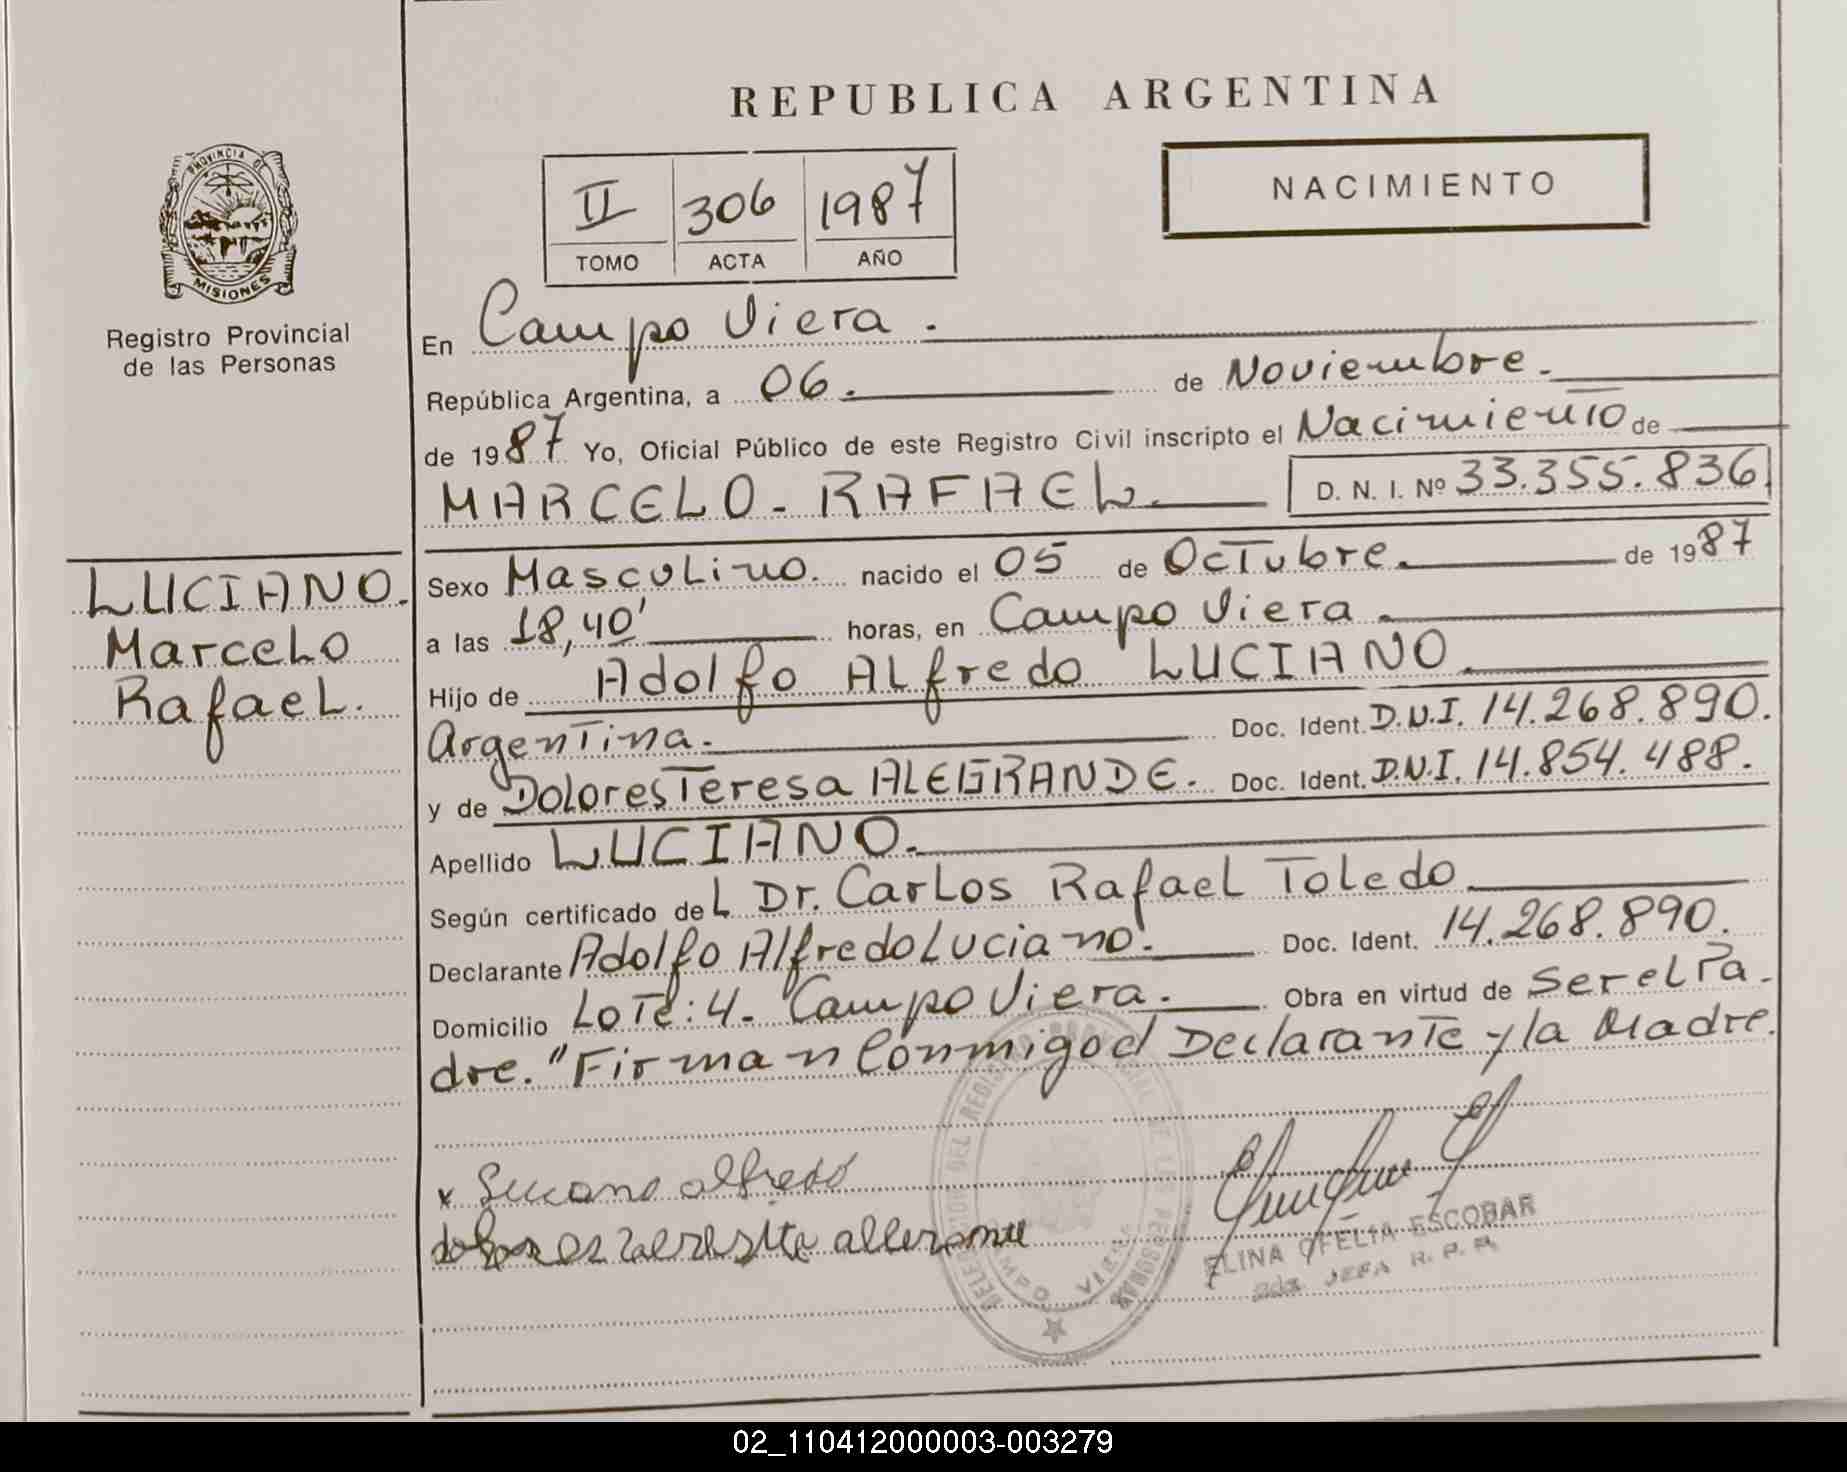 REPUBLICA ARGENTINA
PROVINCIA DE
MISIONES
Registro Provincial
de las Personas
II 306 1987
TOMO ACTA AÑO
NACIMIENTO
En Campo Viera.
República Argentina, a 06. de Noviembre.
de 1987 Yo, Oficial Público de este Registro Civil inscripto el Nacimiento de
MARCELO-RAFAEL. D. N. I. Nº 33.355.836
LUCIANO.
Marcelo
Rafael.
Sexo Masculino. nacido el 05 de Octubre. de 1987
a las 18,40' horas, en Campo Viera.
Hijo de Adolfo Alfredo LUCIANO.
Argentina. Doc. Ident. D.N.I. 14.268.890.
y de Dolores Teresa ALEGRANDE. Doc. Ident. D.N.I. 14.854.488.
Apellido LUCIANO.
Según certificado del Dr. Carlos Rafael Toledo
Declarante Adolfo Alfredo Luciano. Doc. Ident. 14.268.890.
Domicilio Lote: 4. Campo Viera. Obra en virtud de Ser el Pa-
dre. "Firman Conmigo el Declarante y la Madre.
x Luciano alfredo
ELINA OFELIA ESCOBAR
JEFA R. P. P.
02_110412000003-003279